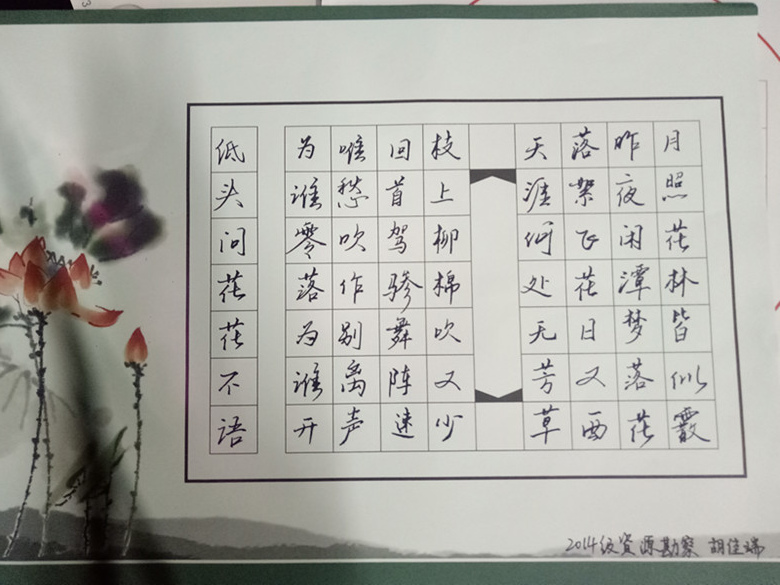 月照花林皆似霰
昨夜闲潭梦落花
落絮飞花日又西
天涯何处无芳草
枝上柳棉吹又少
回首驾骖舞阵速
唯愁吹作别离声
为谁零落为谁开
低头问花花不语
2014级资源勘察 胡佳瑞